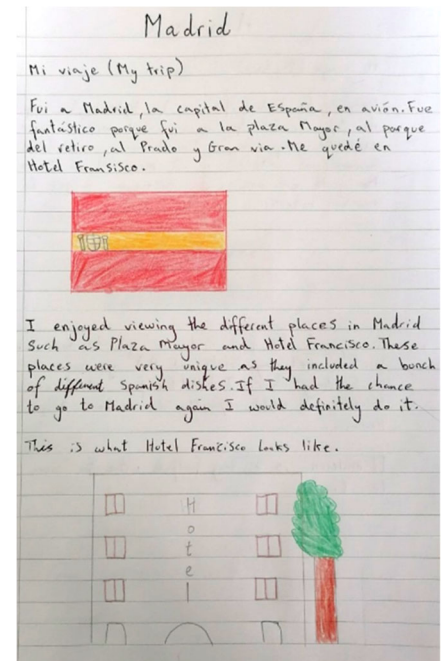 Madrid
Mi viaje (My trip)
Fui a Madrid, la capital de España, en avión. Fue
fantástico porque fui a la plaza Mayor, al parque
del retiro, al Prado y Gran via. Me quedé en
Hotel Fransisco.
I enjoyed viewing the different places in Madrid
such as Plaza Mayor and Hotel Francisco. These
places were very unique as they included a bunch
of different Spanish dishes. If I had the chance
to go to Madrid again I would definitely do it.
This is what Hotel Francisco looks like.
Hotel